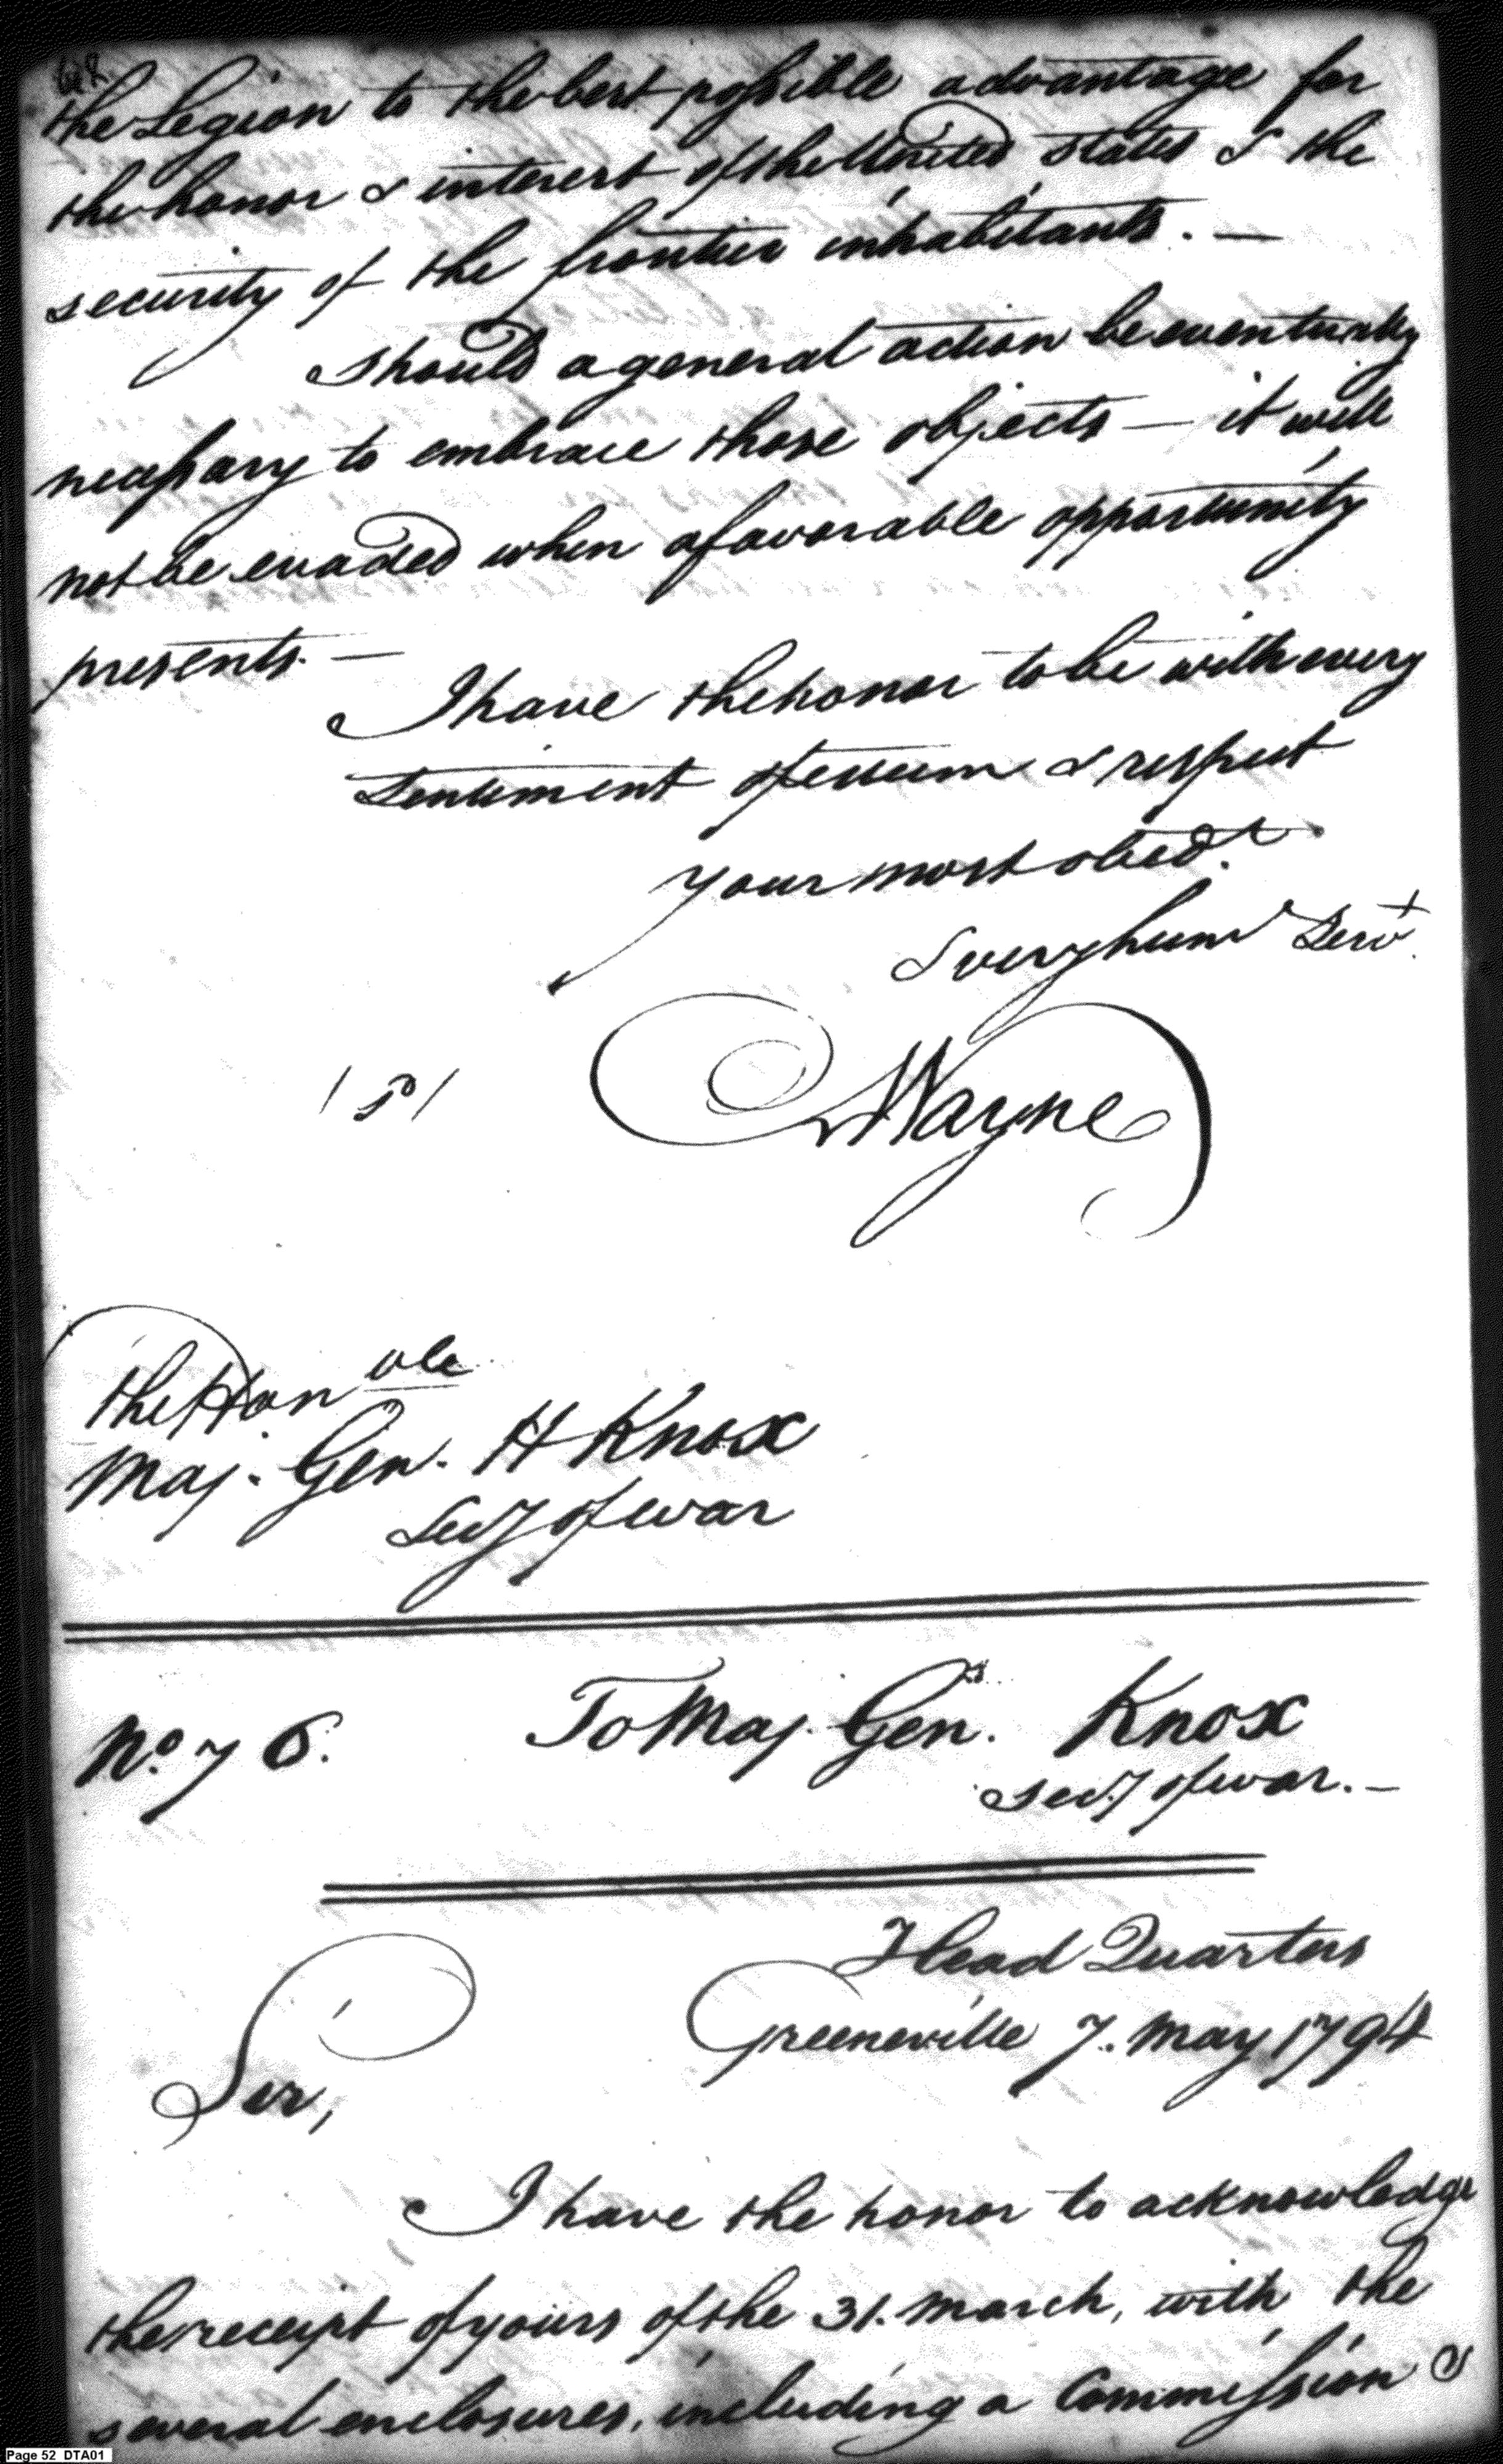 the Legion to the best possible advantage for
the honor & interest of the United States & the
security of the frontier inhabitants. —
Should a general action be eventually
necessary to embrace those objects — it will
not be evaded when a favorable opportunity
presents. —
I have the honor to be with every
Sentiment of esteem & respect
your most obedt.
& very hum Servt.
/S/ Wayne
The Honble
Maj. Gen. H Knox
Secy of war
No. 76. To Maj. Gen. Knox
Secy of war. —
Head Quarters
Greeneville 7. May 1794
Sir,
I have the honor to acknowledge
the receipt of yours of the 31. March, with the
several enclosures, including a Commission
Page 52 DTA01